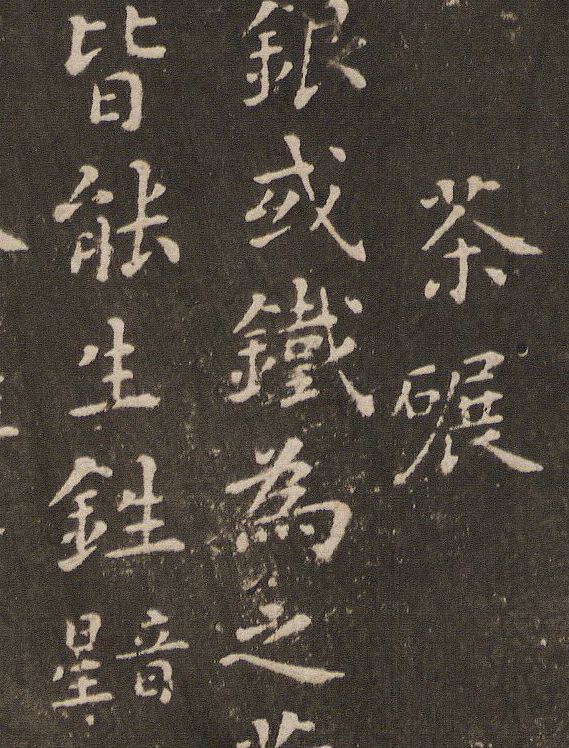 茶碾
銀或鐵為之
皆能生鉎音星